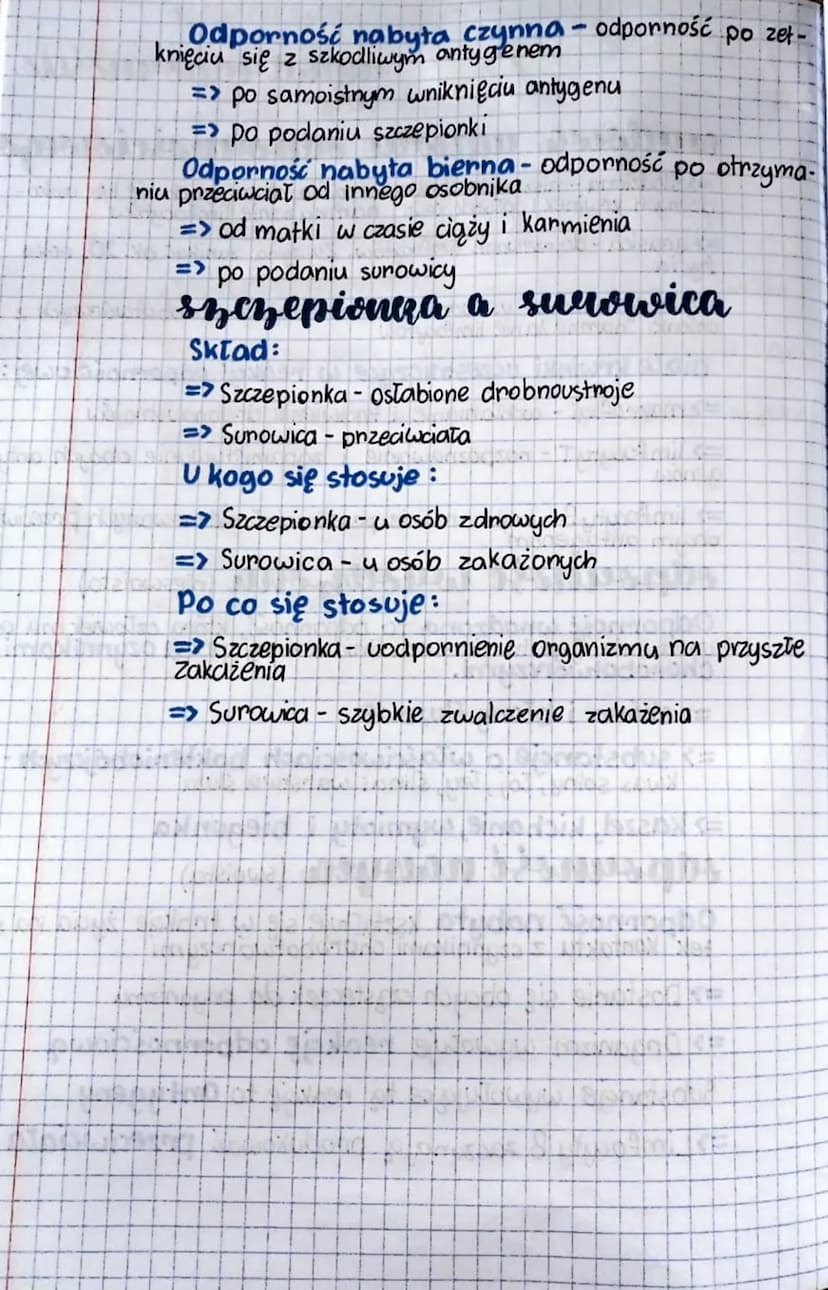 Odporność nabyta czynna - odporność po zet-
knięciu się z szkodliwym antygenem
=> po samoistnym wniknięciu antygenu
=> po podaniu szczepionki
Odporność nabyta bierna - odporność po otrzyma-
niu przeciwciał od innego osobnika
=> od matki w czasie ciąży i karmienia
=> po podaniu surowicy
szczepionka a surowica
Skład:
=> Szczepionka - osłabione drobnoustroje
=> Surowica - przeciwciała
U kogo się stosuje:
=> Szczepionka - u osób zdrowych
=> Surowica - u osób zakażonych
Po co się stosuje:
=> Szczepionka - uodpornienie organizmu na przyszłe
zakażenia
=> Surowica - szybkie zwalczenie zakażenia